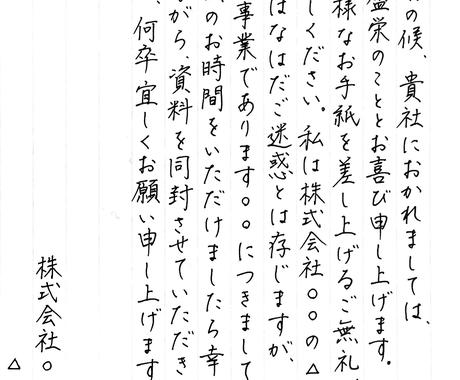 の候、貴社におかれましては、
盛栄のこととお喜び申し上げます。
様なお手紙を差し上げるご無礼、
しください。私は株式会社○○の△
はなはだご迷惑とは存じますが、
事業であります○○につきまして
のお時間をいただけましたら幸
がら、資料を同封させていただき
、何卒宜しくお願い申し上げます
株式会社○
△